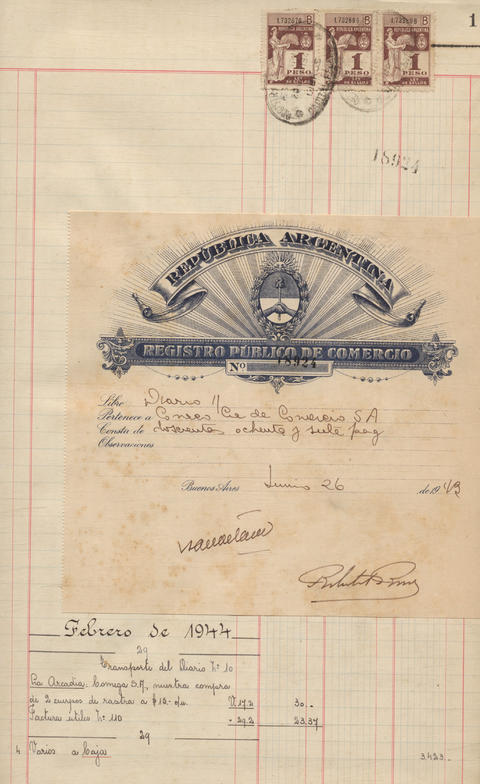 1
1.732676 B 1.732686 B 1.732696 B
REPÚBLICA ARGENTINA REPÚBLICA ARGENTINA REPÚBLICA ARGENTINA
1 1 1
PESO PESO PESO
18924
REPÚBLICA ARGENTINA
REGISTRO PÚBLICO DE COMERCIO
Nº 18924
Libro Diario 11
Pertenece a Cia de Comercio S A
Consta de doscientos ochenta y siete pag
Observaciones
Buenos Aires Junio 26 de 1943
Febrero de 1944
29
Transporte del Diario Nº 10
La Arcadia: Comega S.A., nuestra compra
de 2 cuerpos de rastra a $ 15.- c/u. V 17.2 30.-
Factura utiles Nº 110 - 29.2 23.37
29
4 Varios a Caja 3423.-